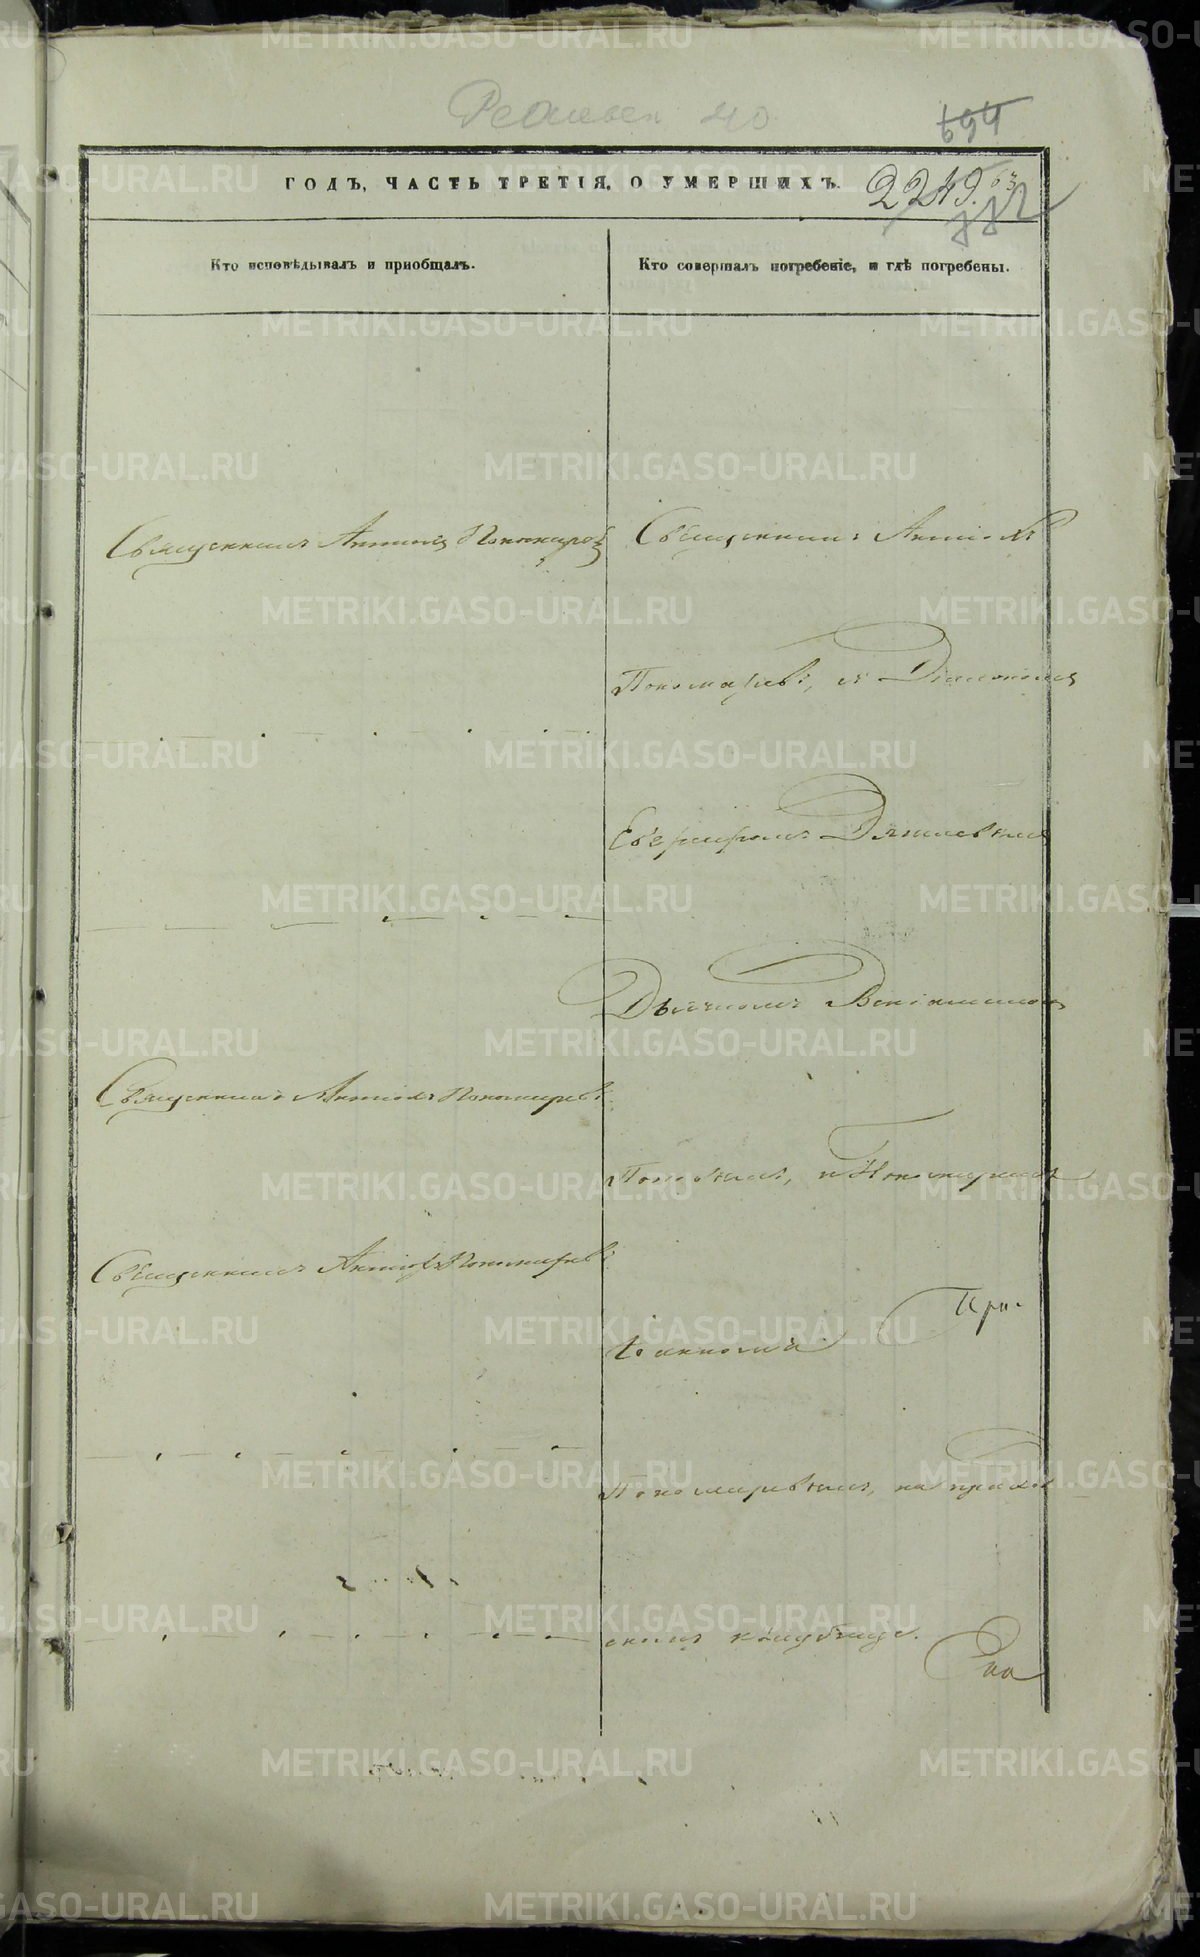 694
ГОДЪ, ЧАСТЬ ТРЕТІЯ, О УМЕРШИХЪ.
2249.
Кто исповѣдывалъ и пріобщалъ.
Кто совершалъ погребеніе, и гдѣ погребены.
Священникъ Антіохъ Пономаревъ
Священникъ Антіохъ
Пономаревъ, съ Діакономъ
Дьячкомъ Веніаминомъ
Священникъ Антіохъ Пономаревъ
Поповымъ, и Пономаремъ
Священникъ Антіохъ Пономаревъ
Іоанномъ
Пономаревымъ, на приход
скомъ кладбище.
METRIKI.GASO-URAL.RU